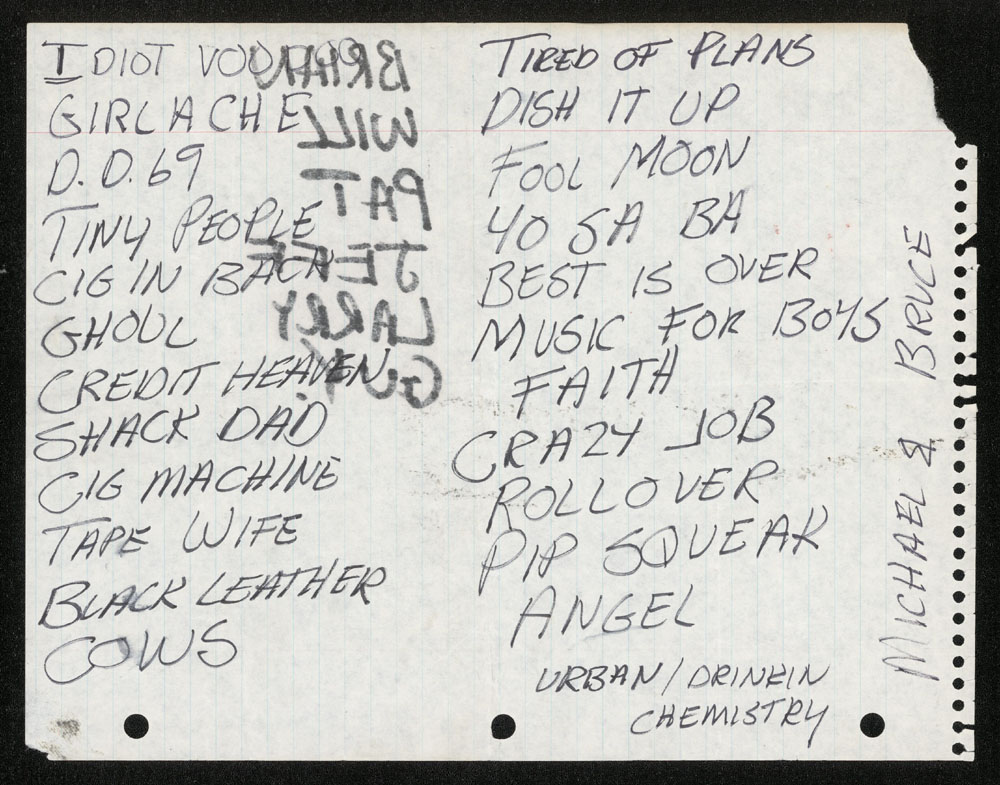 IDIOT VOODOO
GIRL ACHE
D.D. 69
TINY PEOPLE
CIG IN BACK
GHOUL
CREDIT HEAVEN
SHACK DAD
CIG MACHINE
TAPE WIFE
BLACK LEATHER
COWS
BRIAN
WILL
PAT
JEFF
LARRY
GUY
TIRED OF PLANS
DISH IT UP
FOOL MOON
YO SA BA
BEST IS OVER
MUSIC FOR BOYS
FAITH
CRAZY JOB
ROLLOVER
PIP SQUEAK
ANGEL
URBAN / DRINKIN
CHEMISTRY
MICHAEL & BRUCE